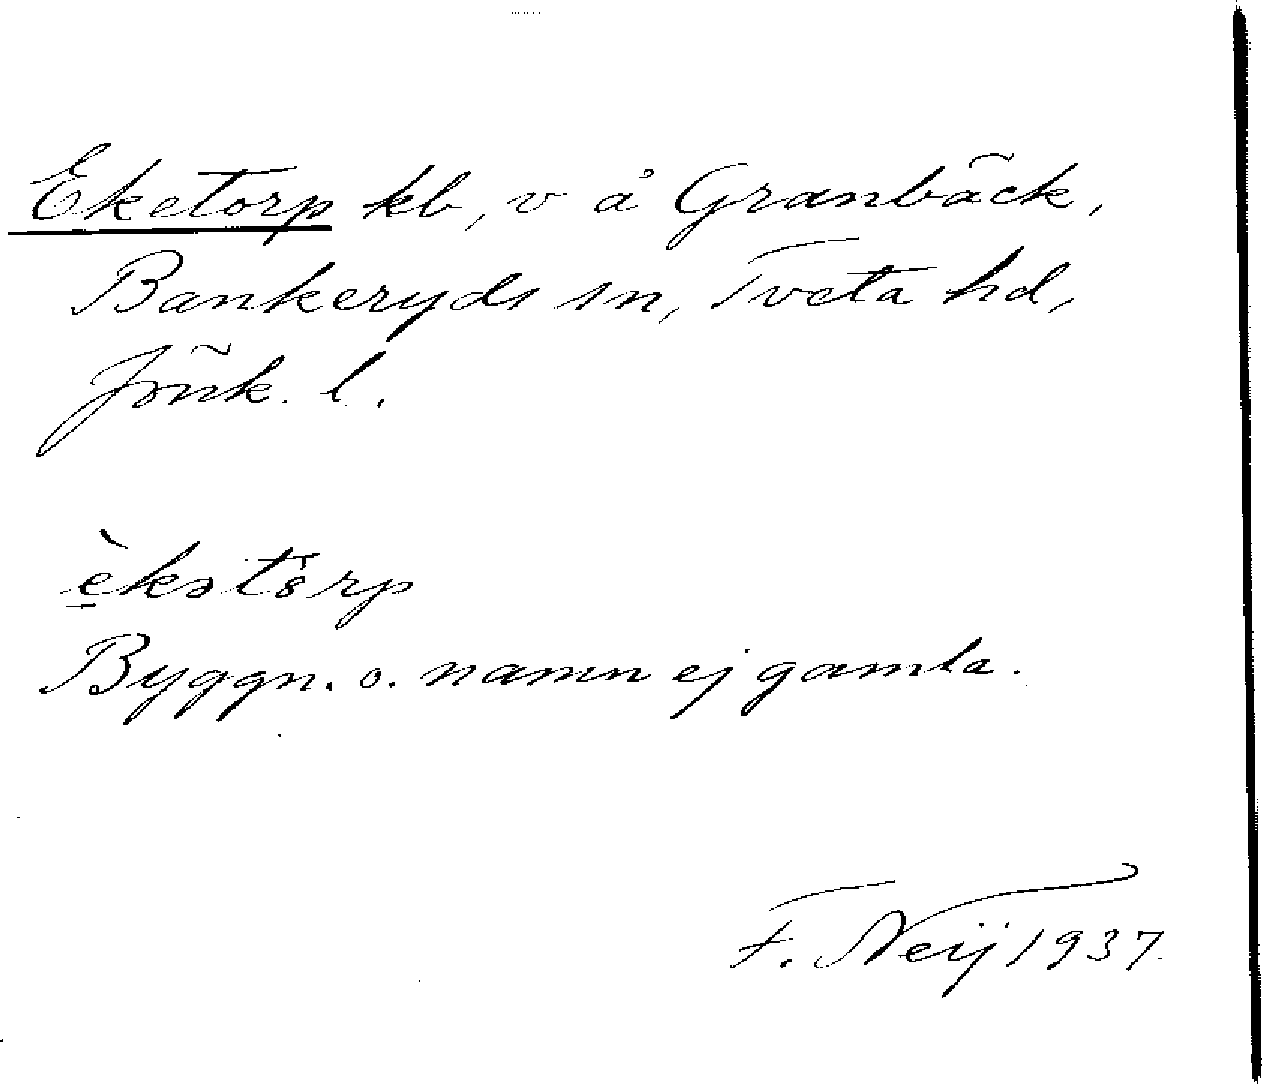 Eketorp kb, v å Granbäck,
Bankeryds sn, Tveta hd,
Jönk. l.
èkətȯrp
Byggn. o. namn ej gamla.
F. Neij 1937.